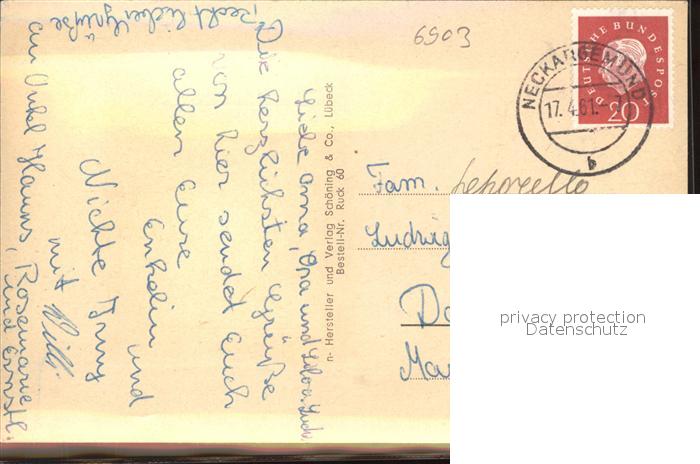 6903
DEUTSCHE BUNDESPOST
20
NECKARGEMÜND
17.4.61.-7
b
Liebe Oma, Opa und
Die herzlichsten Grüße
von hier sendet Euch
allen Eure
Enkelin und
Nichte Inny
mit Willi
recht liebe Grüße
an Onkel Hanns, Rosemarie
und Ernstl.
n- Hersteller und Verlag Schöning & Co., Lübeck
Bestell-Nr. Ruck 60
Fam. Leporello
Ludwig
Da
Mar
privacy protection
Datenschutz